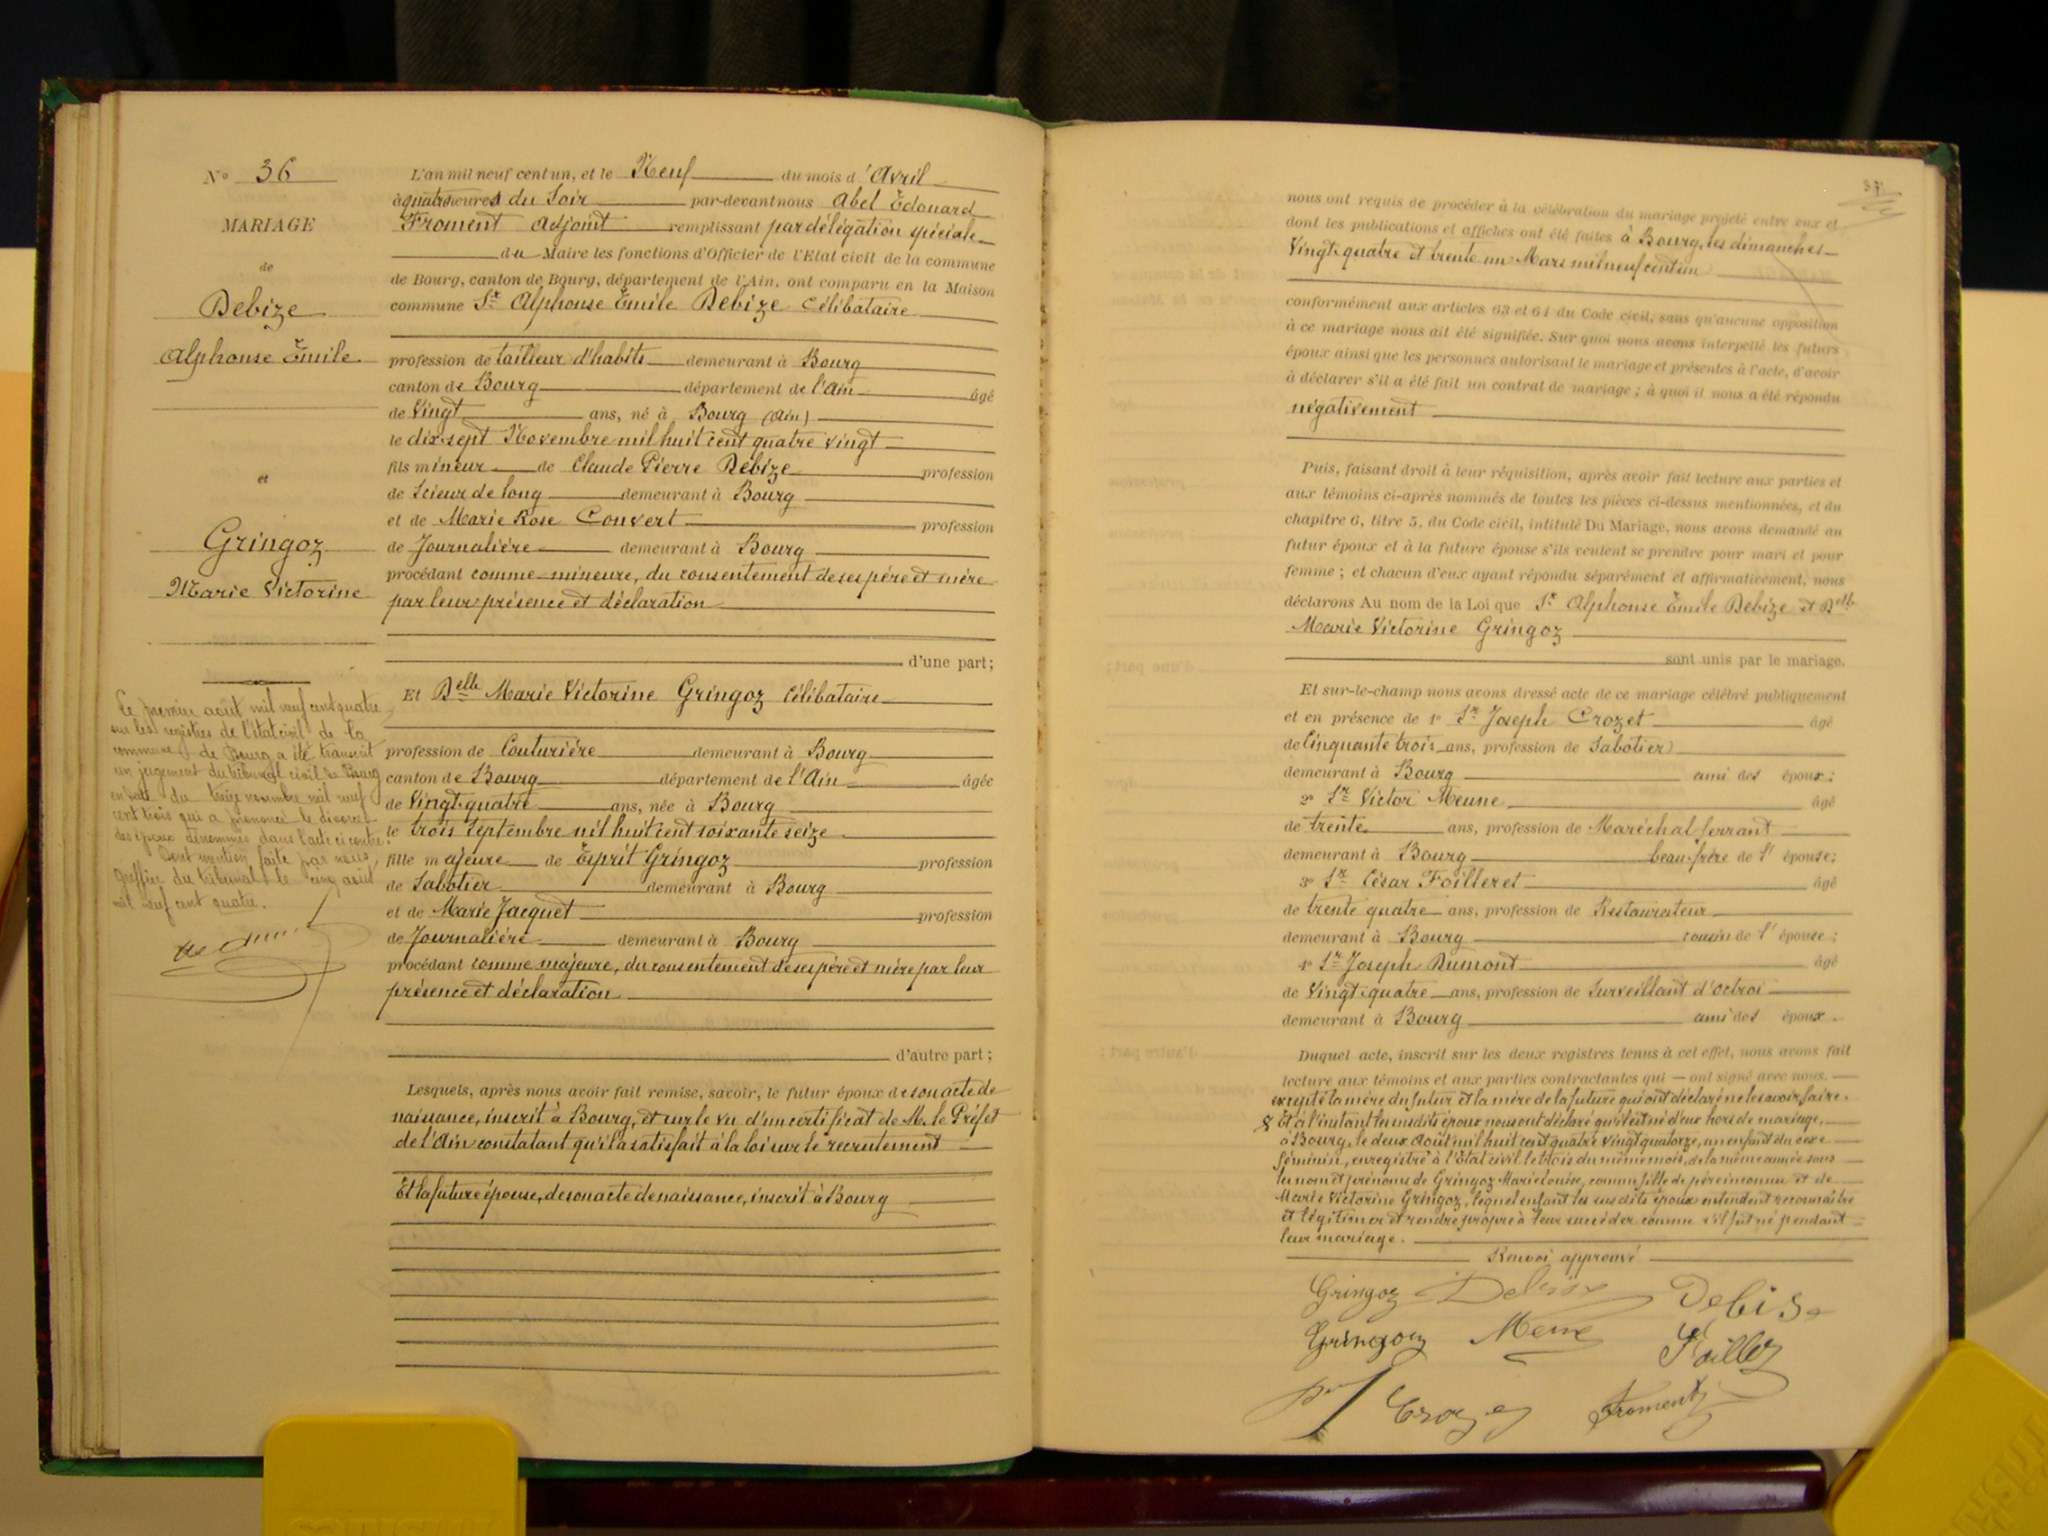 N° 36
MARIAGE
de
Debize
Alphonse Émile
et
Gringoz
Marie Victorine
Le premier août mil neuf cent quatre
sur les registres de l'état civil de la
commune de Bourg a été transcrit
un jugement du tribunal civil de Bourg
en date du treize novembre mil neuf
cent trois qui a prononcé le divorce
des époux dénommés dans l'acte ci contre.
Dont mention faite par nous,
Greffier du tribunal le cinq août
mil neuf cent quatre.
L'an mil neuf cent un, et le Neuf du mois d'Avril
à quatre heures du Soir par-devant nous Abel Édouard
Froment Adjoint remplissant par délégation spéciale
du Maire les fonctions d'Officier de l'Etat civil de la commune
de Bourg, canton de Bourg, département de l'Ain, ont comparu en la Maison
commune Sr Alphonse Émile Debize Célibataire
profession de tailleur d'habits demeurant à Bourg
canton de Bourg département de l'Ain âgé
de Vingt ans, né à Bourg (Ain)
le dix sept Novembre mil huit cent quatre vingt
fils mineur de Claude Pierre Debize profession
de Scieur de long demeurant à Bourg
et de Marie Rose Convert profession
de Journalière demeurant à Bourg
procédant comme mineure, du consentement de ses père et mère
par leur présence et déclaration
d'une part;
Et Delle Marie Victorine Gringoz Célibataire
profession de Couturière demeurant à Bourg
canton de Bourg département de l'Ain âgée
de Vingt quatre ans, née à Bourg
le trois Septembre mil huit cent soixante seize
fille majeure de Esprit Gringoz profession
de Sabotier demeurant à Bourg
et de Marie Jacquet profession
de Journalière demeurant à Bourg
procédant comme majeure, du consentement de ses père et mère par leur
présence et déclaration
d'autre part;
Lesquels, après nous avoir fait remise, savoir, le futur époux de son acte de
naissance, inscrit à Bourg, et sur le vu d'un certificat de M. le Préfet
de l'Ain constatant qu'il a satisfait à la loi sur le recrutement
Et la future épouse, de son acte de naissance, inscrit à Bourg
37
nous ont requis de procéder à la célébration du mariage projeté entre eux et
dont les publications et affiches ont été faites à Bourg, les dimanches
Vingt quatre et trente un Mars mil neuf cent un
conformément aux articles 63 et 64 du Code civil, sans qu'aucune opposition
à ce mariage nous ait été signifiée. Sur quoi nous avons interpellé les futurs
époux ainsi que les personnes autorisant le mariage et présentes à l'acte, d'avoir
à déclarer s'il a été fait un contrat de mariage ; à quoi il nous a été répondu
négativement
Puis, faisant droit à leur réquisition, après avoir fait lecture aux parties et
aux témoins ci-après nommés de toutes les pièces ci-dessus mentionnées, et du
chapitre 6, titre 5, du Code civil, intitulé Du Mariage, nous avons demandé au
futur époux et à la future épouse s'ils veulent se prendre pour mari et pour
femme ; et chacun d'eux ayant répondu séparément et affirmativement, nous
déclarons Au nom de la Loi que Sr Alphonse Émile Debize et Delle
Marie Victorine Gringoz
sont unis par le mariage.
Et sur-le-champ nous avons dressé acte de ce mariage célébré publiquement
et en présence de 1° Sr Joseph Crozet âgé
de Cinquante trois ans, profession de Sabotier
demeurant à Bourg ami des époux ;
2° Sr Victor Meune âgé
de trente ans, profession de Maréchal ferrant
demeurant à Bourg beau-frère de l'épouse;
3° Sr César Foilleret âgé
de trente quatre ans, profession de Restaurateur
demeurant à Bourg cousin de l'épouse ;
4° Sr Joseph Dumont âgé
de Vingt quatre ans, profession de Surveillant d'octroi
demeurant à Bourg ami des époux.
Duquel acte, inscrit sur les deux registres tenus à cet effet, nous avons fait
lecture aux témoins et aux parties contractantes qui ont signé avec nous.
excepté la mère du futur et la mère de la future qui ont déclaré ne le savoir faire.
Et à l'instant les susdits époux nous ont déclaré qu'il est né d'eux hors de mariage,
à Bourg, le deux Août mil huit cent quatre vingt quatorze, un enfant du sexe
féminin, enregistré à l'État civil le trois du même mois, de la même année sous
les nom et prénoms de Gringoz Marie Louise, comme fille de père inconnu et de
Marie Victorine Gringoz, lequel enfant les susdits époux entendent reconnaître
et légitimer et rendre propre à leur succéder comme s'il fut né pendant
leur mariage.
Renvoi approuvé
Gringoz Debise Debise
Gringoz Meune
Crozet Froment